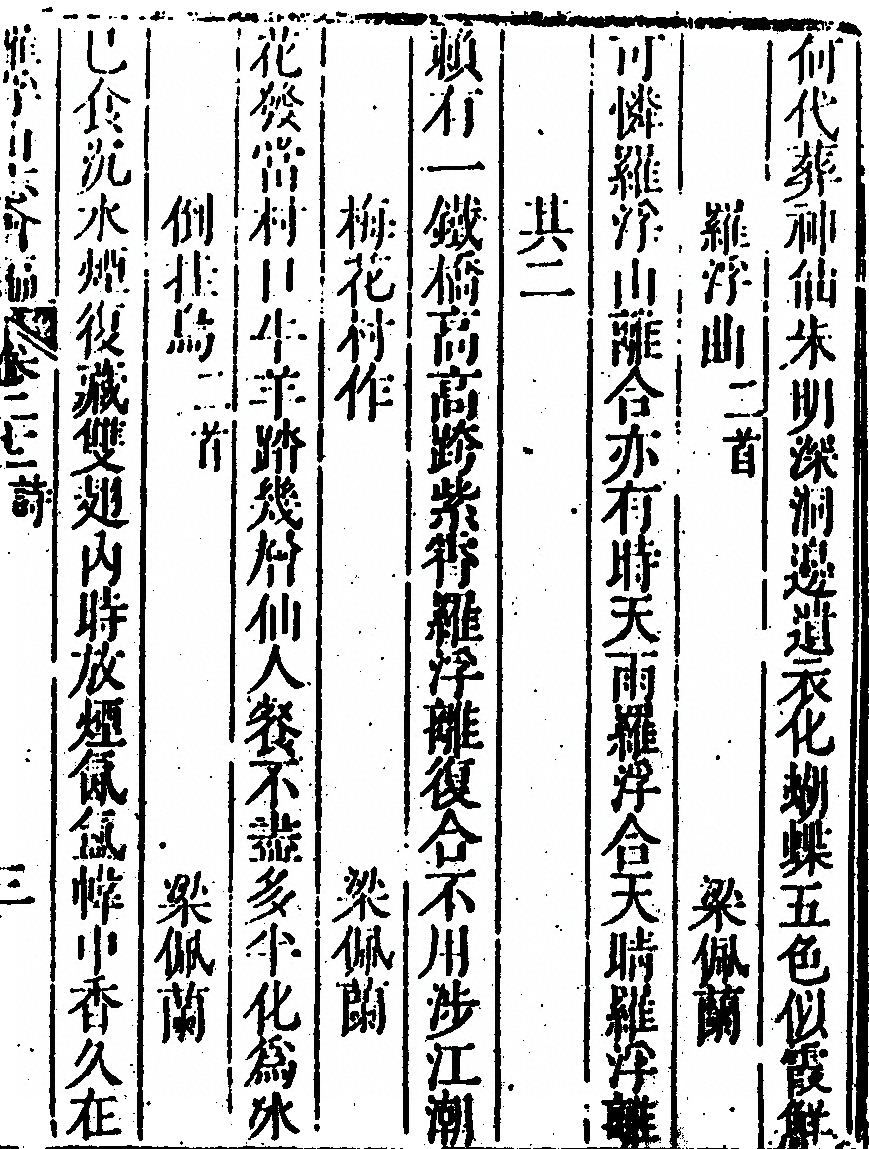 何代葬神仙朱明深洞邊遺衣化蝴蝶五色似霞鮮
羅浮曲二首 梁佩蘭
可憐羅浮山離合亦有時天雨羅浮合天晴羅浮離
其二
賴有一鐵橋高高跨紫霄羅浮離復合不用涉江潮
梅花村作 梁佩蘭
花發當村口牛羊踏幾層仙人餐不盡多半化爲冰
倒挂鳥二首 梁佩蘭
已食沉水煙復藏雙翅內時放煙氤氳幃中香久在
卷二十二 詩 三